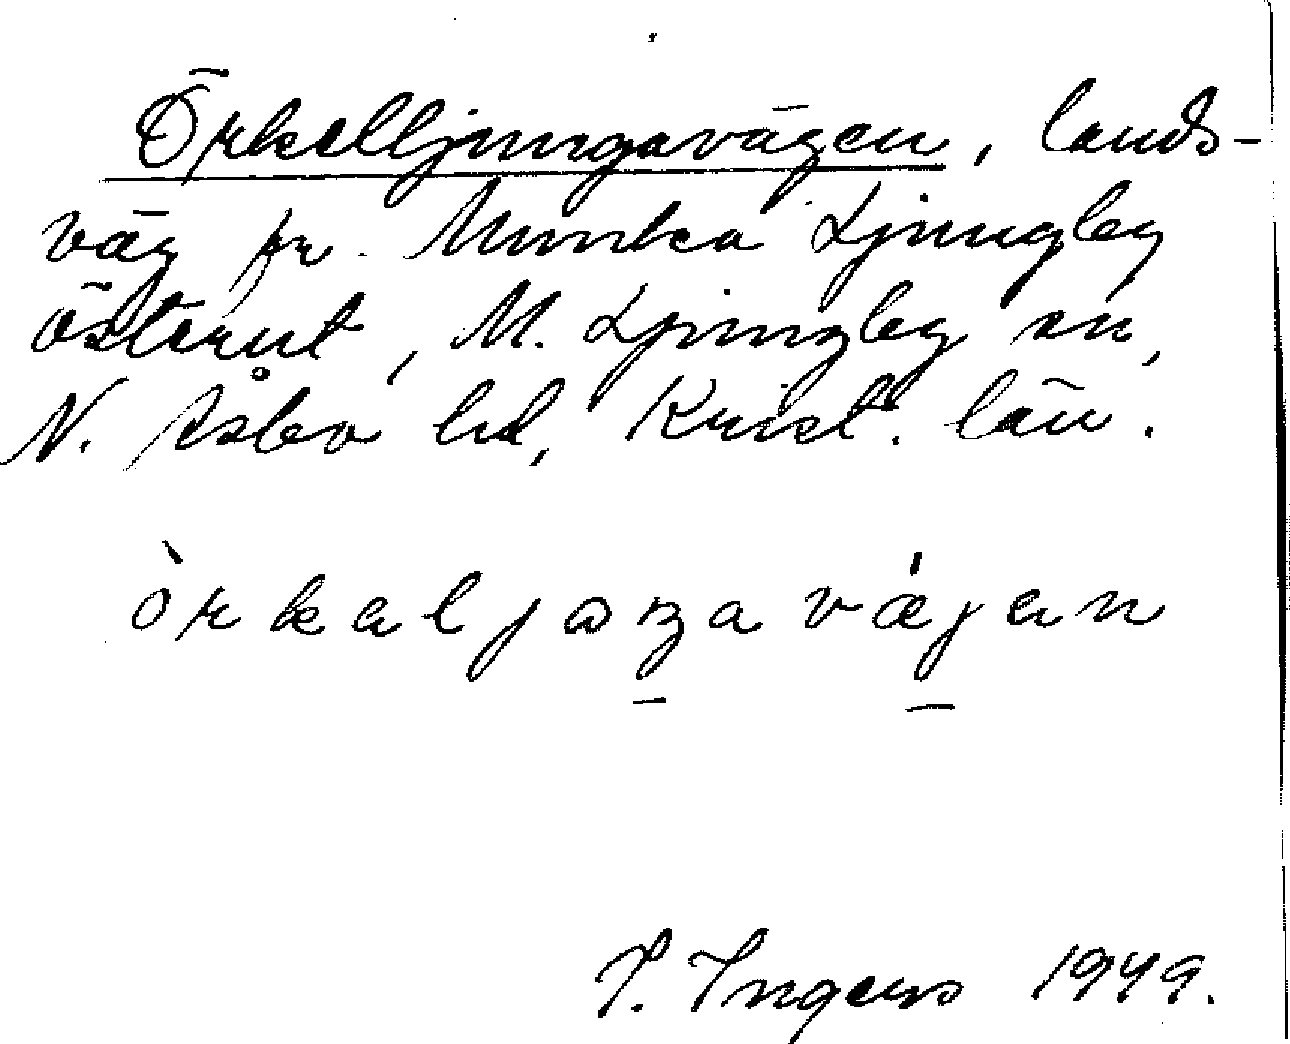 Örkelljungavägen, lands-
väg fr. Munka Ljungby
österut, M. Ljungby sn,
N. Åsbo hd, Krist. län.
òrkaljaŋa vǽjan
I. Ingers 1949.